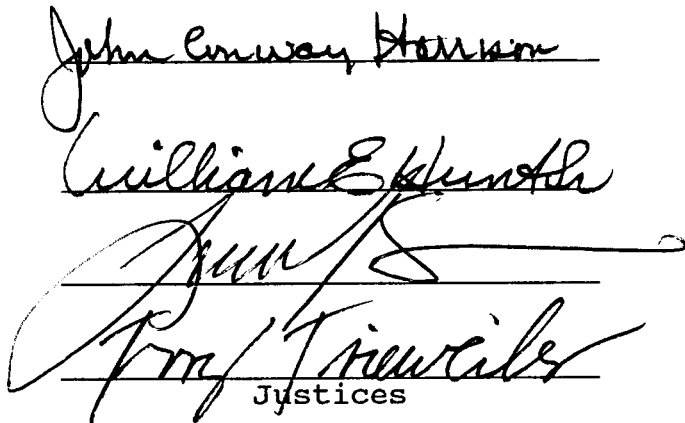 John Conway Harrison
William E Hunt Sr
Terry Trieweiler
Justices